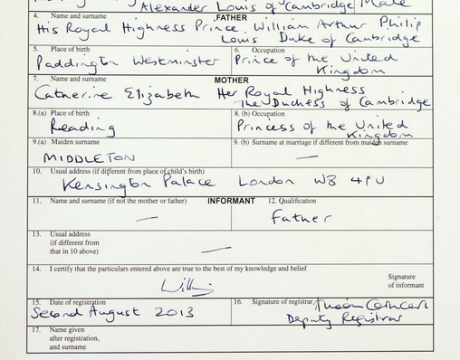 Alexander Louis of Cambridge Male
4. Name and surname FATHER
His Royal Highness Prince William Arthur Philip
Louis Duke of Cambridge
5. Place of birth 6. Occupation
Paddington Westminster Prince of the United
Kingdom
7. Name and surname MOTHER
Catherine Elizabeth Her Royal Highness
The Duchess of Cambridge
8.(a) Place of birth 8. (b) Occupation
Reading Princess of the United
Kingdom
9.(a) Maiden surname 9. (b) Surname at marriage if different from maiden surname
MIDDLETON —
10. Usual address (if different from place of child's birth)
Kensington Palace London W8 4PU
11. Name and surname (if not the mother or father) INFORMANT 12. Qualification
— Father
13. Usual address
(if different from
that in 10 above) —
14. I certify that the particulars entered above are true to the best of my knowledge and belief
Signature
of informant
15. Date of registration 16. Signature of registrar
Second August 2013
Deputy Registrar
17. Name given
after registration,
and surname